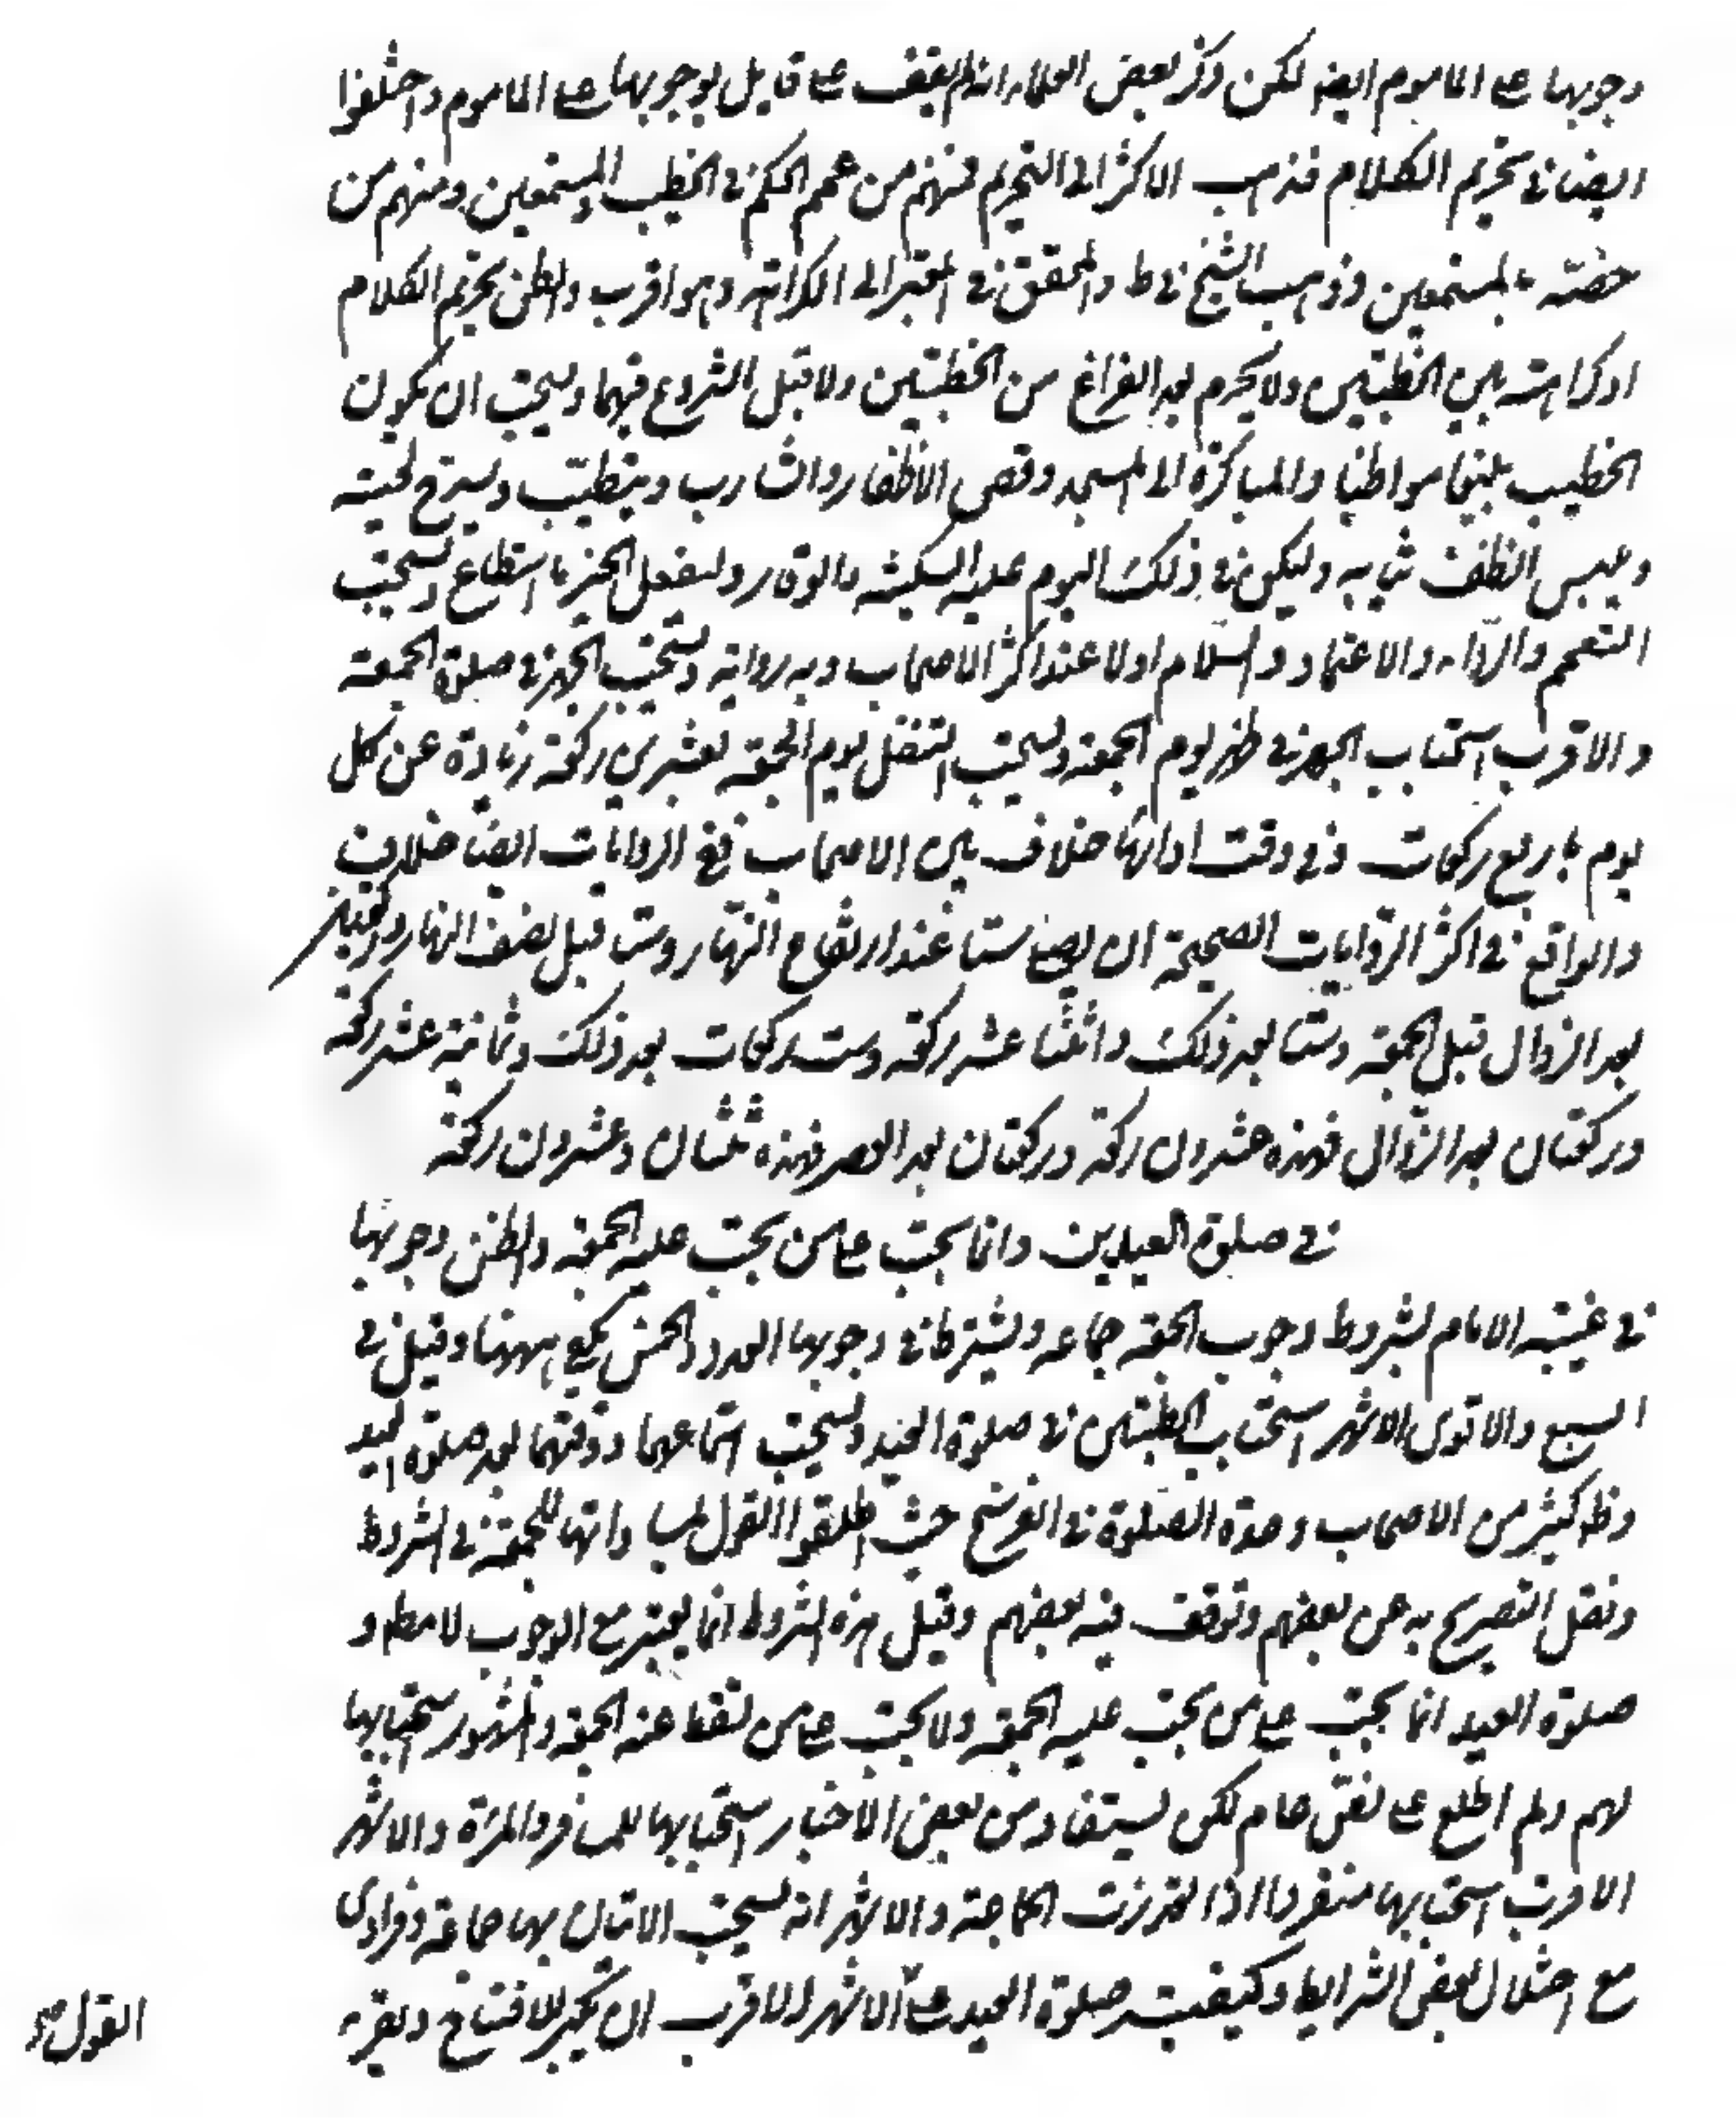 وجوبها على الماموم ايضا لكن ذكر بعض العلماء انه لم يقف على قايل بوجوبها على الماموم واختلفوا
ايضا في تحريم الكلام فذهب الاكثر الى التحريم فمنهم من عمم الحكم في الخطيب والمستمعين ومنهم من
خصّه بالمستمعين وذهب الشيخ في ط والمحقق في المعتبر الى الكراهة وهو اقرب والظن تحريم الكلام
او كراهته بين الخطبتين ولا يحرم بعد الفراغ من الخطبتين ولا قبل الشروع فيهما ويستحب ان يكون
الخطيب بليغا مواظبا والمباكرة الى المسجد وقص الاظفار والشارب ويتطيّب ويسرح لحيته
ويلبس انظف ثيابه وليكن في ذلك اليوم عليه السكينة والوقار وليفعل الخير ما استطاع ويستحب
التعمم والرّداء والاعتماد والسّلام اولا عند اكثر الاصحاب وبه رواية ويستحب الجهر في صلوة الجمعة
والاقرب استحباب الجهر في ظهر يوم الجمعة ويستحب التنفل يوم الجمعة بعشرين ركعة زيادة عن كل
يوم باربع ركعات وفي وقت ادائها خلاف بين الاصحاب ففي الروايات ايضا خلاف
والواقع في اكثر الرّوايات الصحيحة ان يصلي ستا عند ارتفاع النّهار وستا قبل نصف النهار وركعتين
بعد الزوال قبل الجمعة وستا بعد ذلك واثنتا عشر ركعة وست ركعات بعد ذلك وثمانية عشر ركعة
وركعتان بعد الزّوال فهذه عشرون ركعة وركعتان بعد العصر فهذه ثنتان وعشرون ركعة
في صلوة العيدين وانما يجب على من يجب عليه الجمعة والظن وجوبها
في غيبة الامام بشروط وجوب الجمعة جماعة ويشترط في وجوبها العدد والخمس يكفي ههنا وقيل في
السبع والاقوى الاشهر استحباب الخطبتين في صلوة العيد ويستحب استماعهما ووقتهما بعد صلوة العيد
وظ كثير من الاصحاب وحدة الصّلوة في الفرسخ حيث اطلقوا القول بمساواتها للجمعة في الشروط
ونقل التصريح به عن بعضهم وتوقف فيه بعضهم وقيل هذه الشروط انما يعتبر مع الوجوب لا مطلقا و
صلوة العيد انما يجب على من يجب عليه الجمعة ولا يجب على من تسقط عنه الجمعة والمشهور استحبابها
لهم ولم اطلع على نصّ عام لكن يستفاد من بعض الاخبار استحبابها للمسافر والمراة والاشهر
الاقرب استحبابها منفردا اذا تعذرت الجماعة والاشهر انه يستحب الاتيان بها جماعة وفرادى
مع اختلال بعض الشرايط وكيفية صلوة العيد على الاشهر الاقرب ان يكبر للافتتاح ويقرء